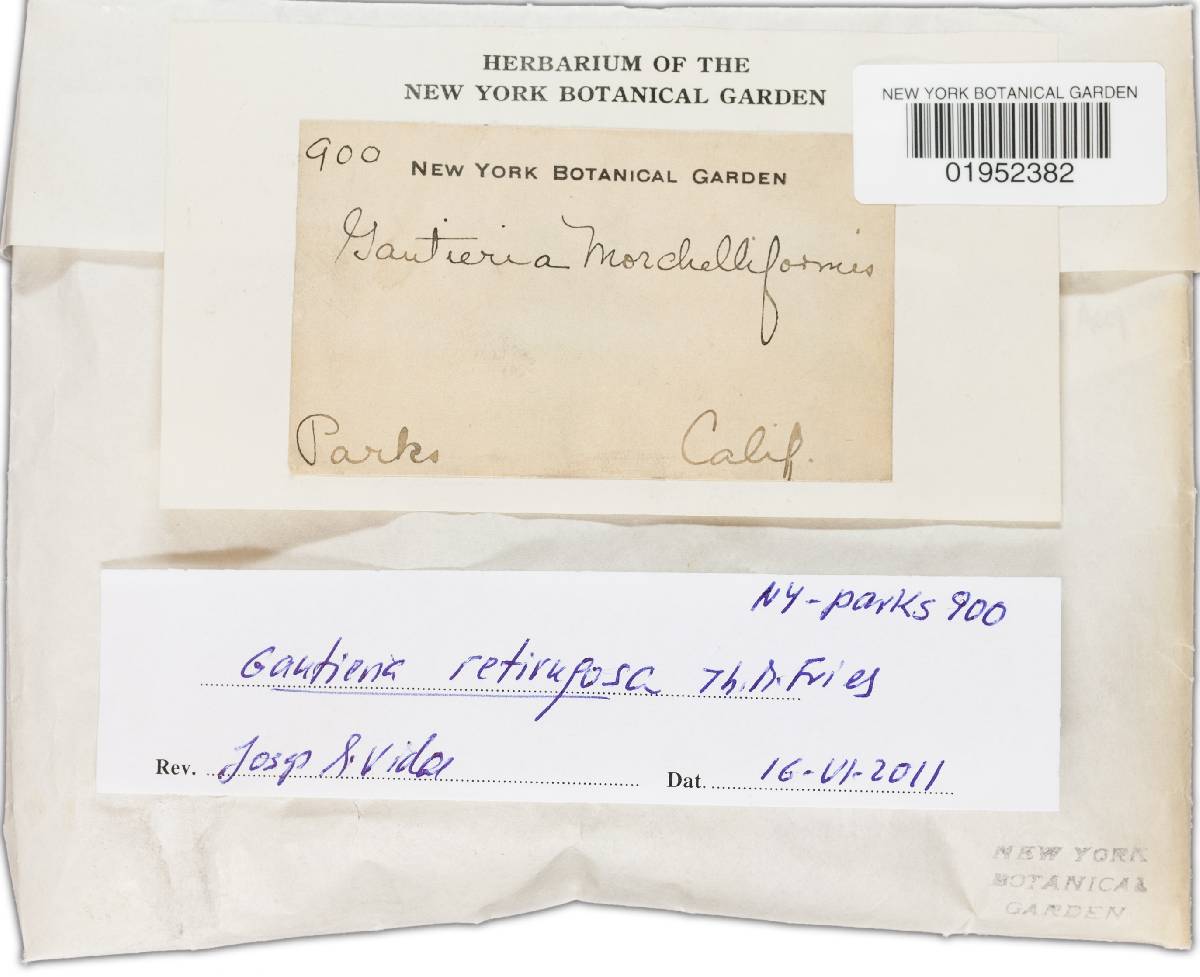 HERBARIUM OF THE
NEW YORK BOTANICAL GARDEN
NEW YORK BOTANICAL GARDEN
01952382
900
NEW YORK BOTANICAL GARDEN
Gautieria Morchelliformis
Parks Calif.
NY-parks 900
Gautieria retirugosa Th.M.Fries
Rev. Josep A. Vidal
Dat. 16-VI-2011
NEW YORK
BOTANICAL
GARDEN